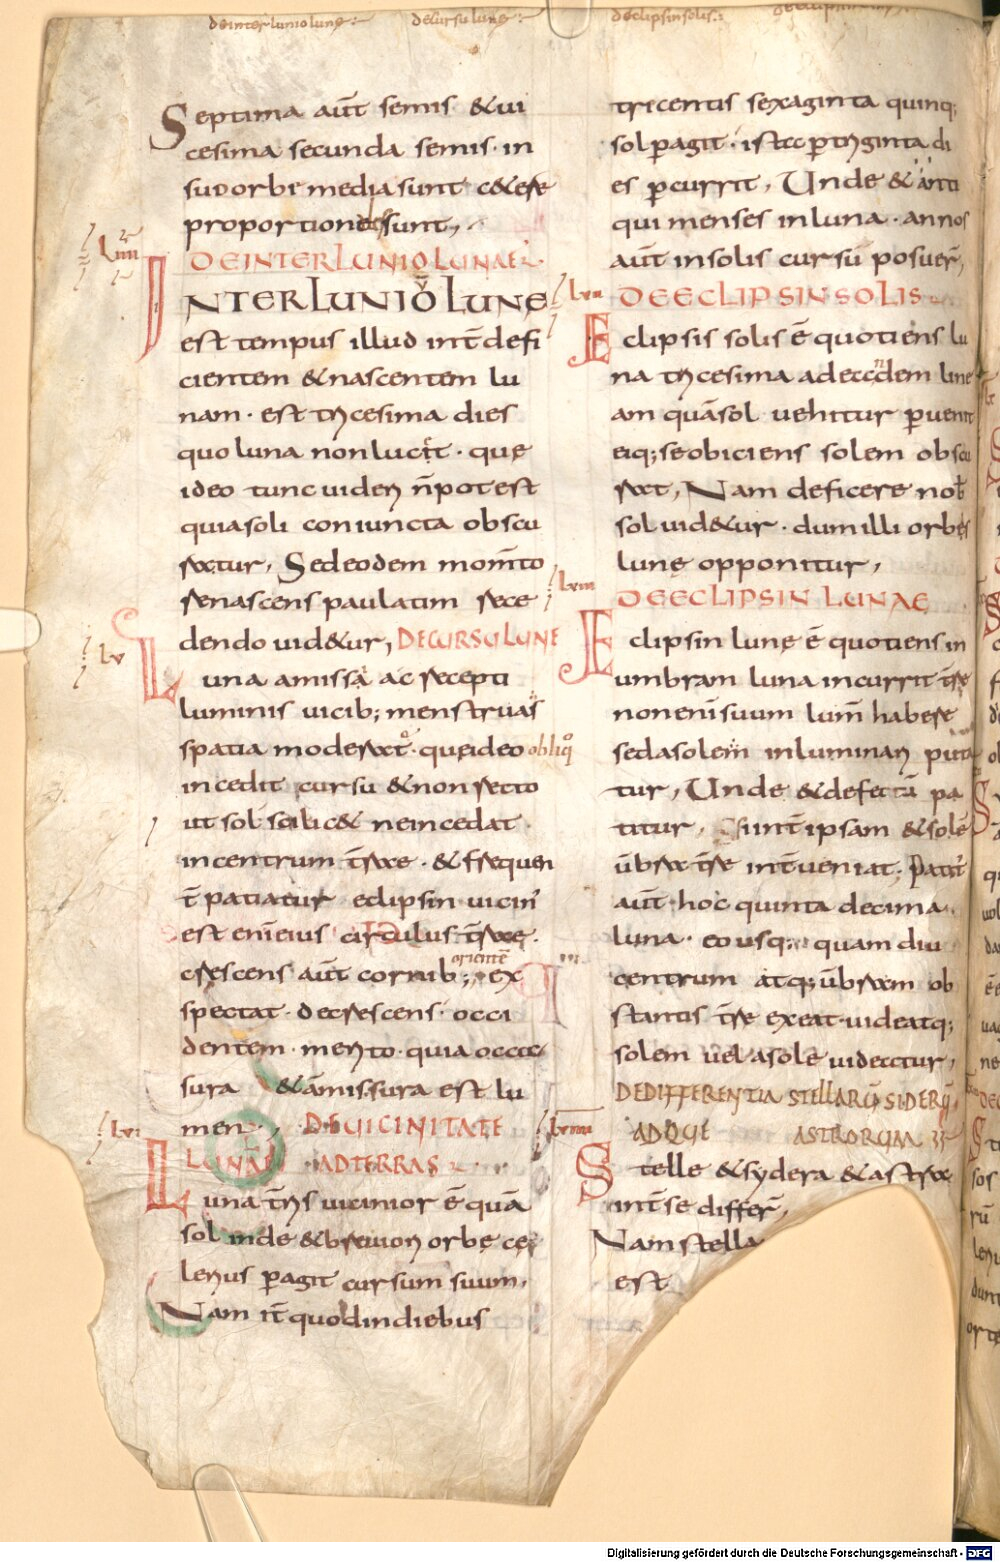 de interlunio lune :~
de cursu lune :~
de eclipsin solis :
Septima aut̄ semis & ui
cesima secunda semis · in
suo orbe media sunt
proportione sunt,
Liiii
DE INTERLUNIO LUNAE
INTERLUNIO LUNE
est tempus illud int̄ defi
cientem & nascentem lu
nam · est tricesima dies
quo luna non lucet · quę
ideo tunc uideri n̄ potest
quia soli coniuncta obscu
ratur, Sed eodem mom̄to
renascens paulatim rece
dendo uid&ur, DE CURSU LUNE
Lv
Luna amissa ac recepti
luminis uicib; menstruas
spatia moderat̄ · que ideo obliq̊
incedit cursu & non recto
ut sol scilic& ne incedat
in centrum t̄rae · & frequen
t̄ patiatur eclipsin uicin'
est eni eius circulus t̄rae ·
crescens aut̄ cornib; orientē ex
spectat · decrescens · occi
dentem · merito · quia occa
sura & amissura est lu
men · DE UICINITATE
Lvi
LUNAE AD TERRAS
Luna t̄ris uicinior ē quā
sol inde & breuiori orbe ce
lerius p̄agit cursum suum,
Nam it̄ quod in diebus
trecentis sexaginta quinq;
sol p̄agit · ista p̄ triginta di
es p̄currit, Unde & anti
qui menses in luna · annos
aut̄ in solis cursu posuer̄,
Lvii
DE ECLIPSIN SOLIS
Eclipsis solis ē quotiens lu
na tricesima ad eandem line
am quā sol uehitur p̄uenit
eiq; se obiciens solem obscu
rat, Nam deficere nob̄
sol uid&ur · dum illi orbis
lunę opponitur,
Lviii
DE ECLIPSIN LUNAE
Eclipsin lunę ē quotiens in
umbram luna incurrit t̄re
non eni suum lum̄ habere
sed a solem inluminari puta
tur, Unde & defectū pa
titur, si int̄ ipsam & solē
ūbra t̄re int̄ueniat; Patit̄
aut̄ hoc quinta decima
luna · eo usq; quam diu
centrum atq; ūbram ob
stantis t̄re exeat · uideatq;
solem uel a sole uideatur,
DE DIFFERENTIA STELLARŪ SIDERŪ
Lviiii
ADQUE ASTRORUM
Stelle & sydera & astra
int̄ se differ̄,
Nam stella
est
Digitalisierung gefördert durch die Deutsche Forschungsgemeinschaft - DFG